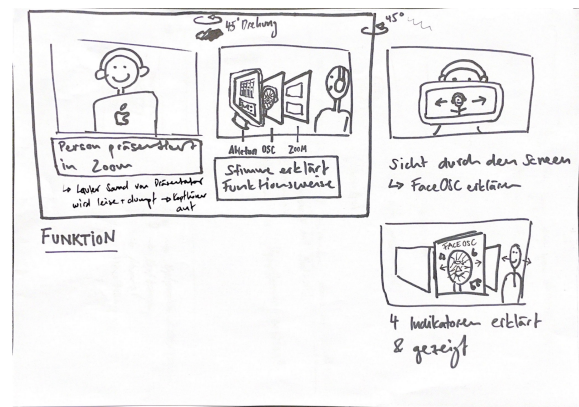 45° Drehung
45°
Person präsentiert
in Zoom
↳ Lauter Sound von Präsentator
wird leise + dumpf → Kopfhörer
auf
Ableton OSC ZOOM
Stimme erklärt
Funktionsweise
Sicht durch den Screen
↳ FaceOSC erklären
FUNKTION
FACE OSC
4 Indikatoren erklärt
& gezeigt